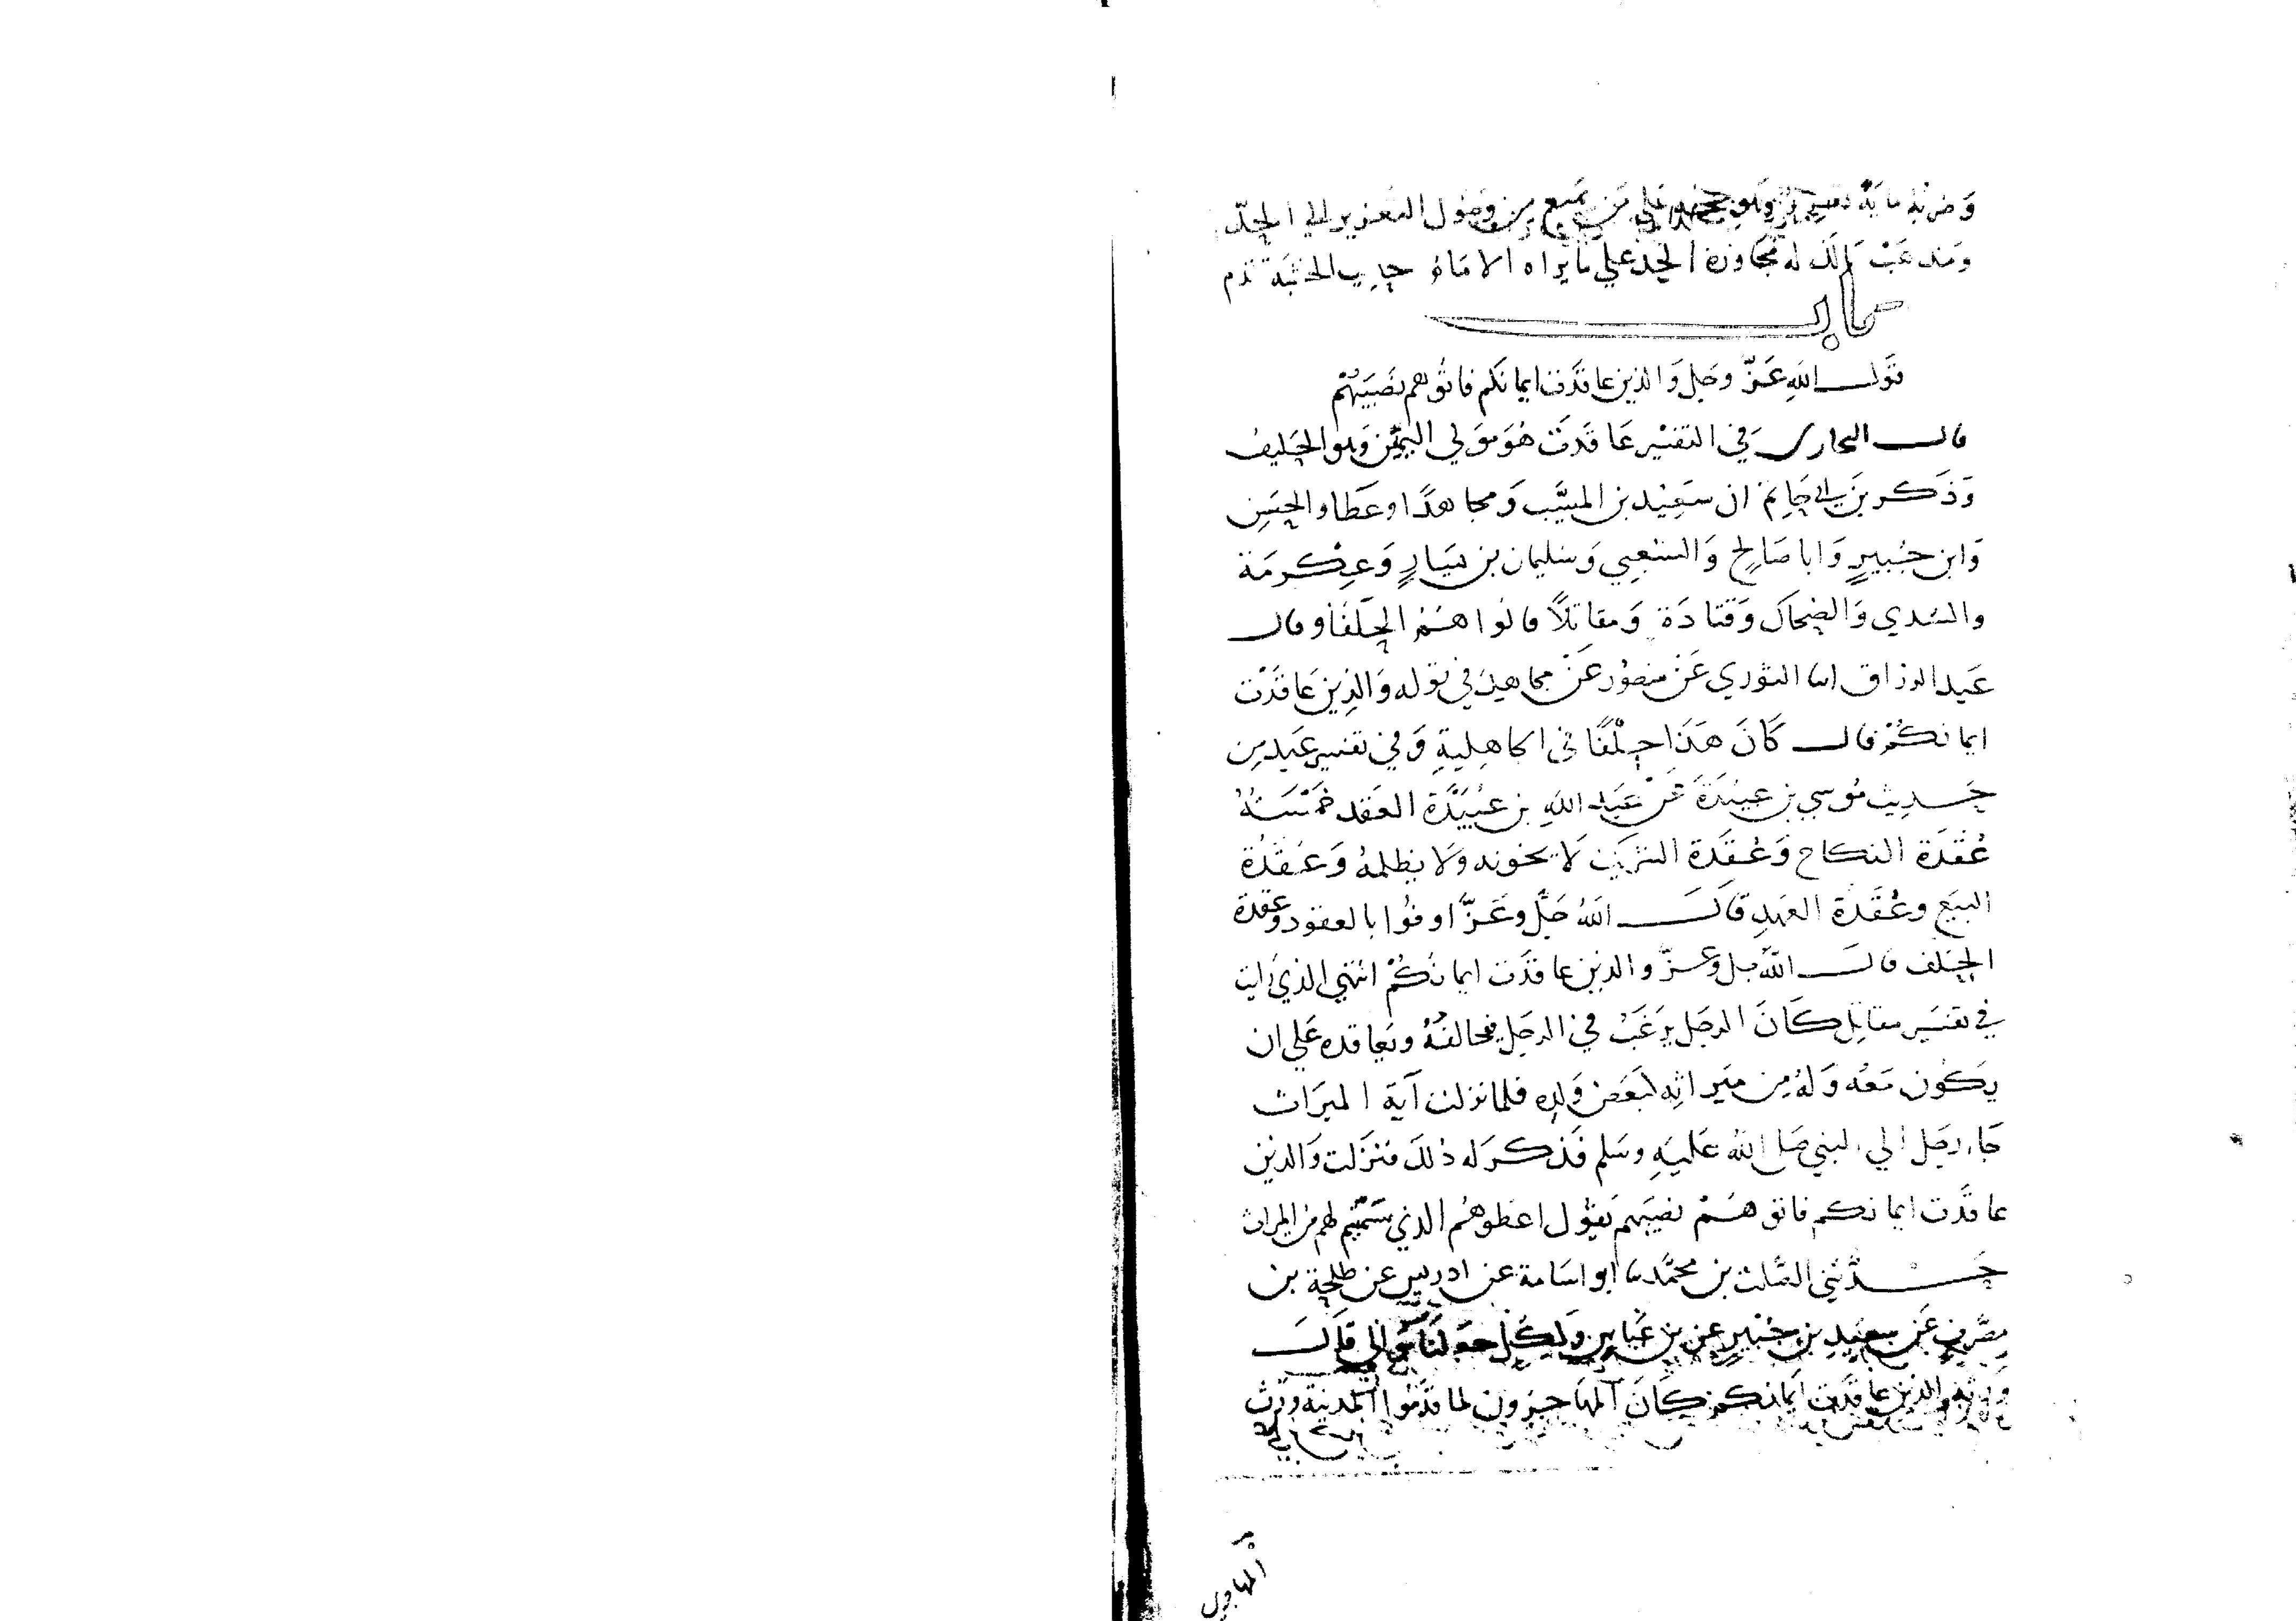 وضربه مايه وهو حجة على من يمنع من وصول التعزير الى الحد
ومذهب مالك له مجاوزة الحد على ما يراه الامام حديب الخشبة تقدم
باب
قول الله عز وجل والذين عاقدت ايمانكم فاتوهم نصيبهم
قال البخاري في التفسير عاقدت هو مولي اليمين وهو الحليف
وذكر بن ابي حاتم ان سعيد بن المسيب ومجاهدا وعطا والحسن
وابن جبير وابا صالح والشعبي وسليمان بن يسار وعكرمة
والسدي والضحاك وقتادة ومقاتلا قالوا هم الحلفا وقال
عبد الرزاق انا الثوري عن منصور عن مجاهد في قوله والذين عاقدت
ايمانكم قال كان هذا حلفا في الجاهلية وفي تفسير عبد من
حديث موسي بن عبيدة عن عبد الله بن عبيدة العقد خمسة
عقدة النكاح وعقدة الشريك لا يخونه ولا يظلمه وعقدة
البيع وعقدة العهد قال الله جل وعز اوفوا بالعقود وعقدة
الحلف قال الله جل وعز والذين عاقدت ايمانكم انتهي الذي رايت
في تفسير مقاتل كان الرجل يرغب في الرجل فيحالفه ويعاقده علي ان
يكون معه وله من ميراثه كبعض ولده فلما نزلت آية الميراث
جاء رجل الي النبي صلى الله عليه وسلم فذكر له ذلك فنزلت والذين
عاقدت ايمانكم فاتوهم نصيبهم يقول اعطوهم الذي سميتم لهم من الميراث
حدثني الصلت بن محمد ثنا ابو اسامة عن ادريس عن طلحة بن
مصرف عن سعيد بن جبير عن بن عباس ولكل جعلنا موالي قال
ورثة والذين عاقدت ايمانكم كان المهاجرون لما قدموا المدينة ورث
المهاجري